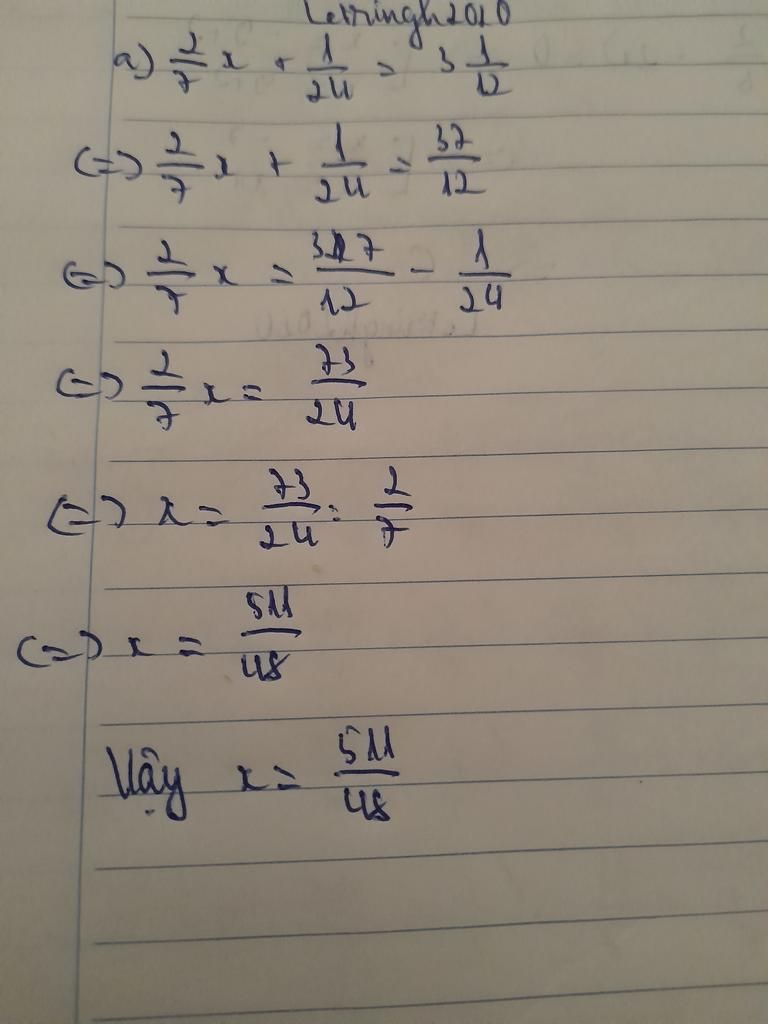 Letringh2010
a) 2/7 x + 1/24 = 3 1/12
(=) 2/7 x + 1/24 = 37/12
(=) 2/7 x = 37/12 - 1/24
(=) 2/7 x = 73/24
(=) x = 73/24 : 2/7
(=) x = 511/48
Vậy x = 511/48